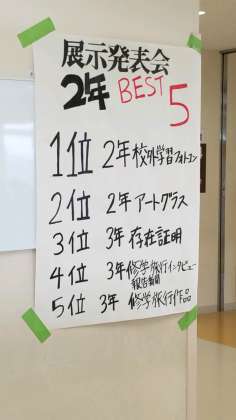 展示発表会
2年 BEST 5
1位 2年校外学習フォトコン
2位 2年アートグラス
3位 3年存在証明
4位 3年修学旅行インタビュー
報告新聞
5位 3年修学旅行作品